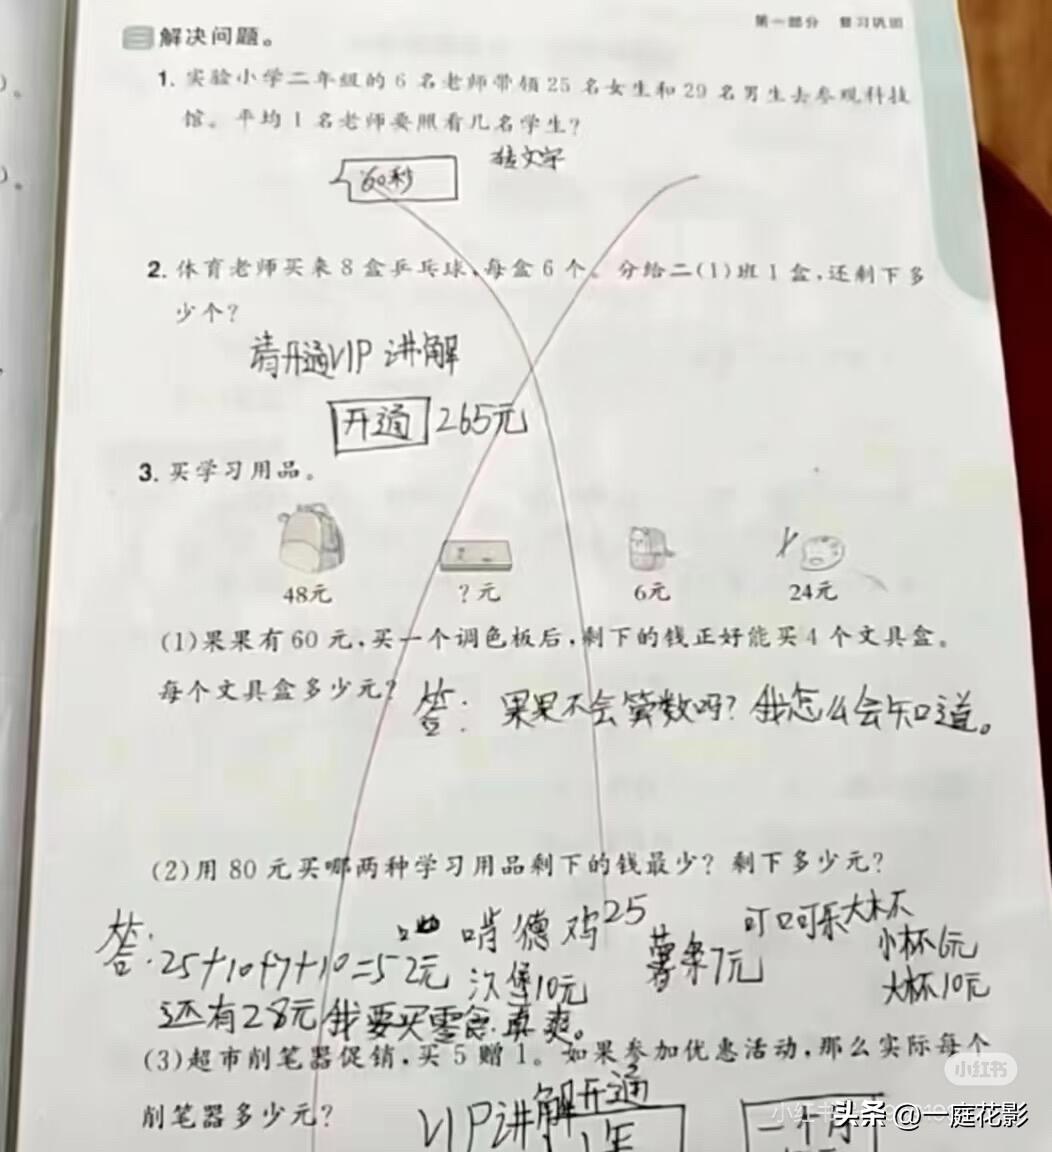 第一部分 复习巩固
三 解决问题。
1. 实验小学二年级的6名老师带领25名女生和29名男生去参观科技
馆。平均1名老师要照看几名学生?
60秒
转文字
2. 体育老师买来8盒乒乓球,每盒6个。分给二(1)班1盒,还剩下多
少个?
请开通VIP讲解
开通 265元
3. 买学习用品。
48元 ?元 6元 24元
(1)果果有60元,买一个调色板后,剩下的钱正好能买4个文具盒。
每个文具盒多少元?
答: 果果不会算数吗?我怎么会知道。
(2)用80元买哪两种学习用品剩下的钱最少?剩下多少元?
答: 25+10+7+10=52元
啃德鸡25
汉堡10元
薯条7元
可口可乐大杯
小杯6元
大杯10元
还有28元我要买零食.真爽。
(3)超市削笔器促销,买5赠1。如果参加优惠活动,那么实际每个
削笔器多少元?
VIP讲解开通
1年
一个月
小红书
头条 @一庭花影